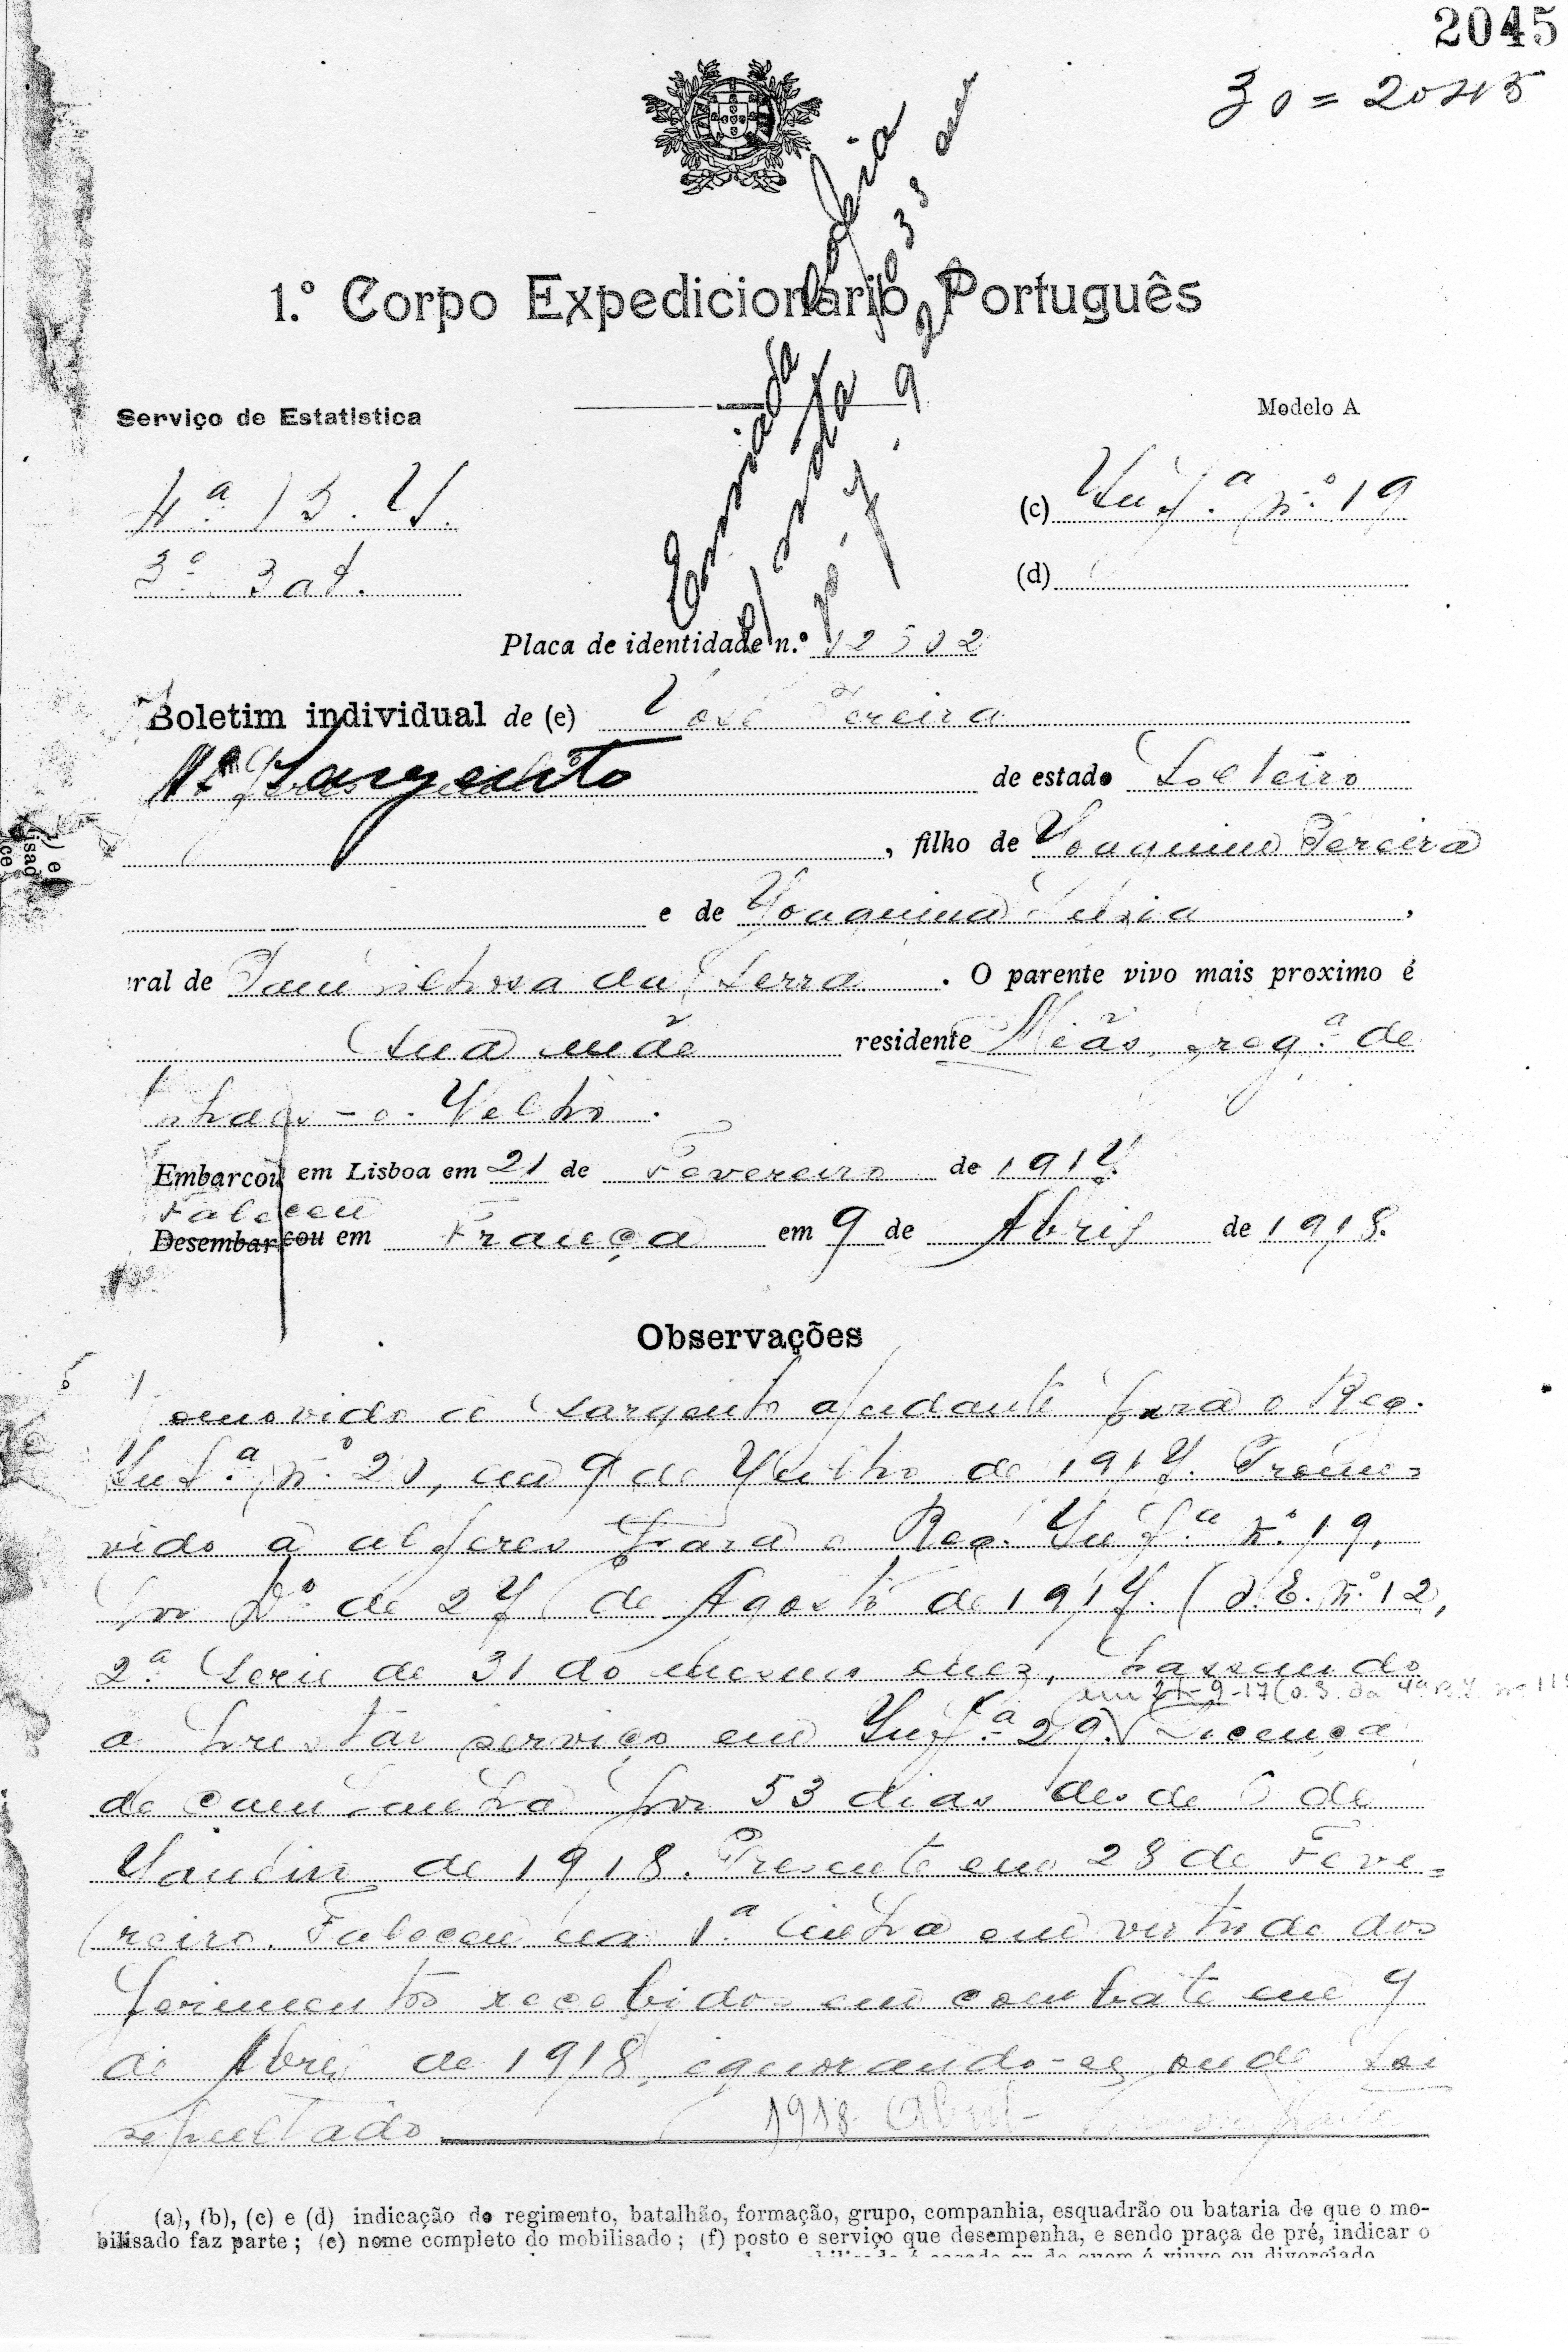 2045
30 = 2045
1.º Corpo Expedicionário Português
Serviço de Estatistica
Modelo A
4.ª B. I.
(c) Inf.ª n.º 19
3.º Bat.
(d)
Enviada copia
Placa de identidade n.º
Boletim individual de (e) José Pereira
Sargento de estado Solteiro
, filho de Joaquim Pereira
e de Joaquina Luzia ,
ral de Pampilhosa da Serra . O parente vivo mais proximo é
Sua mãe residente Meãs, freg.ª de
-o-Velho.
Embarcou em Lisboa em 21 de Fevereiro de 1917.
Faleceu
Desembarcou em França em 9 de Abril de 1918.
Observações
Promovido a Sargento ajudante para o Reg.
Inf.ª n.º 20, em 9 de Julho de 1917. Promo-
vido a alferes para o Reg. Inf.ª n.º 19,
por D.º de 27 de Agosto de 1917. (O. E. n.º 12,
2.ª Serie de 31 do mesmo mez, passando
em 21-9-17 (O.S. da 4ª B.I. nº
a prestar serviço em Inf.ª 29. Licença
de campanha por 53 dias desde 6 de
Janeiro de 1918. Presente em 28 de Feve-
reiro. Faleceu na 1.ª linha em virtude dos
ferimentos recebidos em combate em 9
de Abril de 1918, ignorando-se onde foi
sepultado
1918 Abril-
(a), (b), (c) e (d) indicação do regimento, batalhão, formação, grupo, companhia, esquadrão ou bataria de que o mo-
bilisado faz parte; (e) nome completo do mobilisado; (f) posto e serviço que desempenha, e sendo praça de pré, indicar o